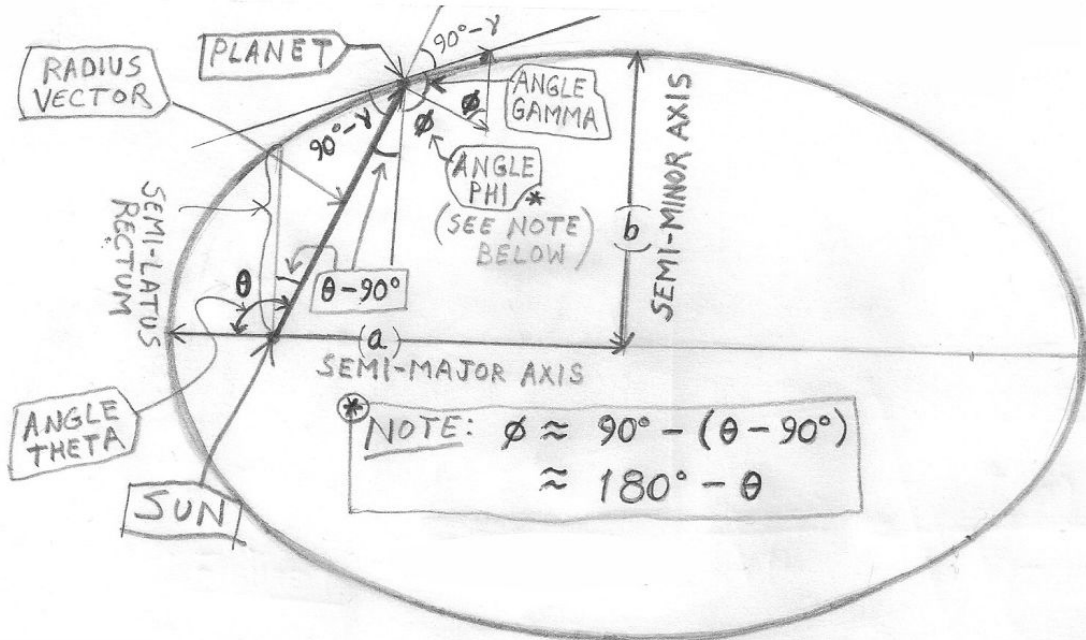 PLANET
90°-γ
RADIUS
VECTOR
ANGLE
GAMMA
ϕ
90°-γ
ϕ
ANGLE
PHI *
(SEE NOTE
BELOW)
SEMI-LATUS
RECTUM
SEMI-MINOR AXIS
(b)
θ
θ-90°
(a)
SEMI-MAJOR AXIS
ANGLE
THETA
SUN
* NOTE: ϕ ≈ 90° - (θ - 90°)
≈ 180° - θ